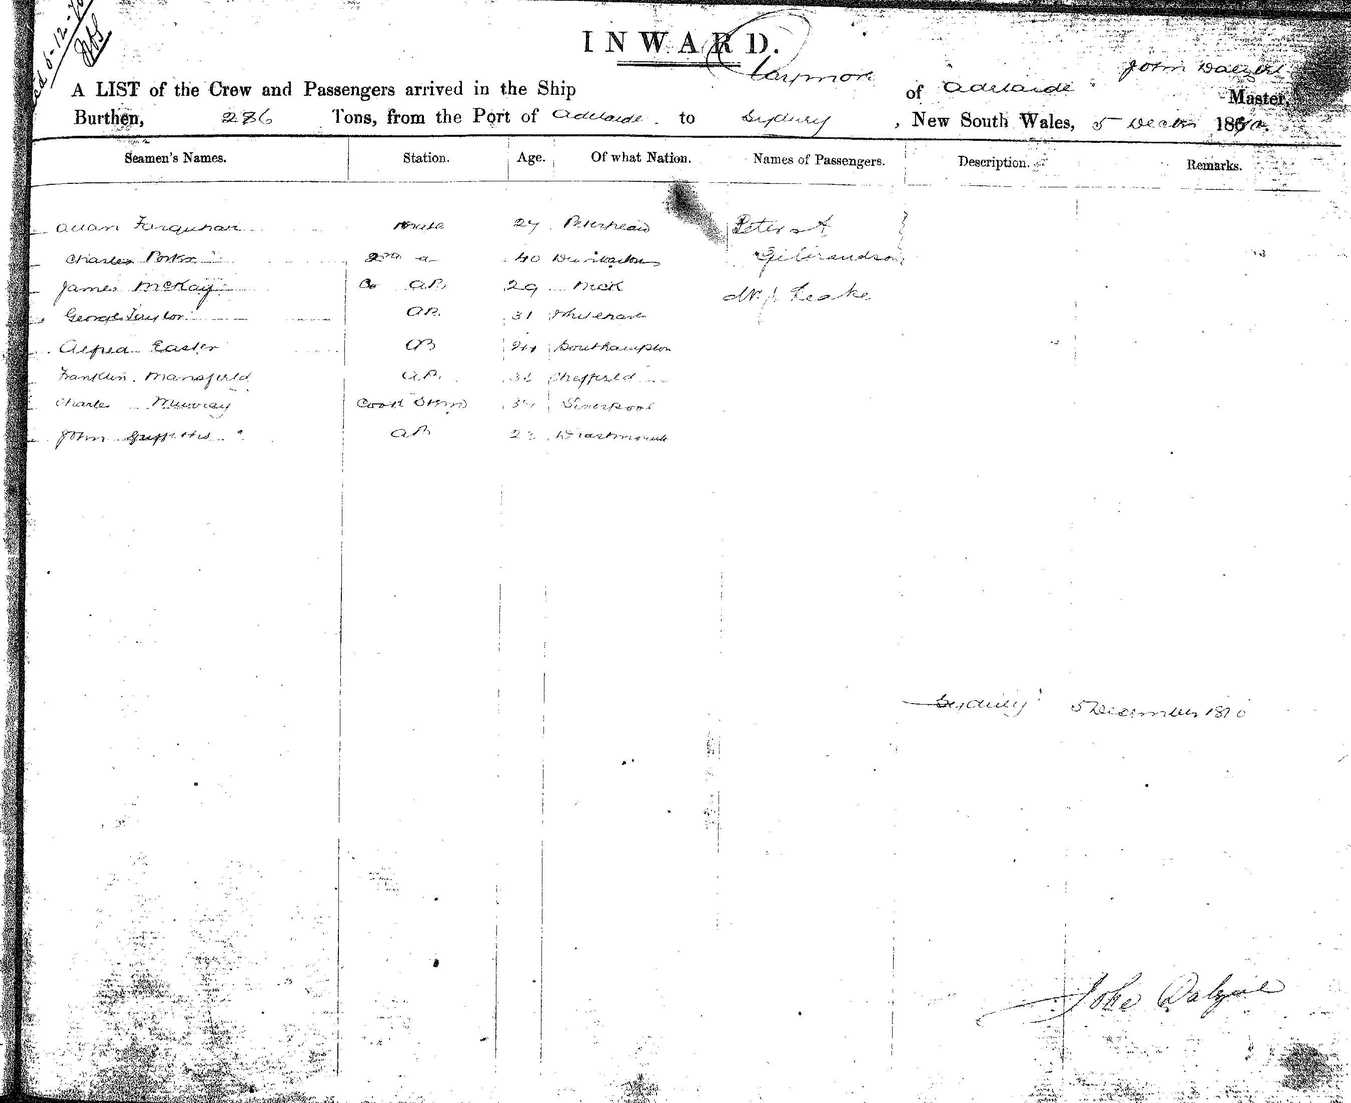 6-12-70
INWARD.
John Dalziel
A LIST of the Crew and Passengers arrived in the Ship Claymore of Adelaide Master,
Burthen, 286 Tons, from the Port of Adelaide to Sydney, New South Wales, 5 Decr 1870.
Seamen's Names. Station. Age. Of what Nation. Names of Passengers. Description. Remarks.
Allan Farquhar Mate 27 Peterhead Peter A
Charles Porter 2nd 40 Gilbrandson
James McKay AB 29 Wick Mr J. Leake
George Taylor AB 31
Alfred Easter AB 24 Southampton
Franklin Mansfield AB Sheffield
Charles Murray Cook Stewd 34 Liverpool
John Griffiths AB
Sydney 5 December 1870
John Dalziel